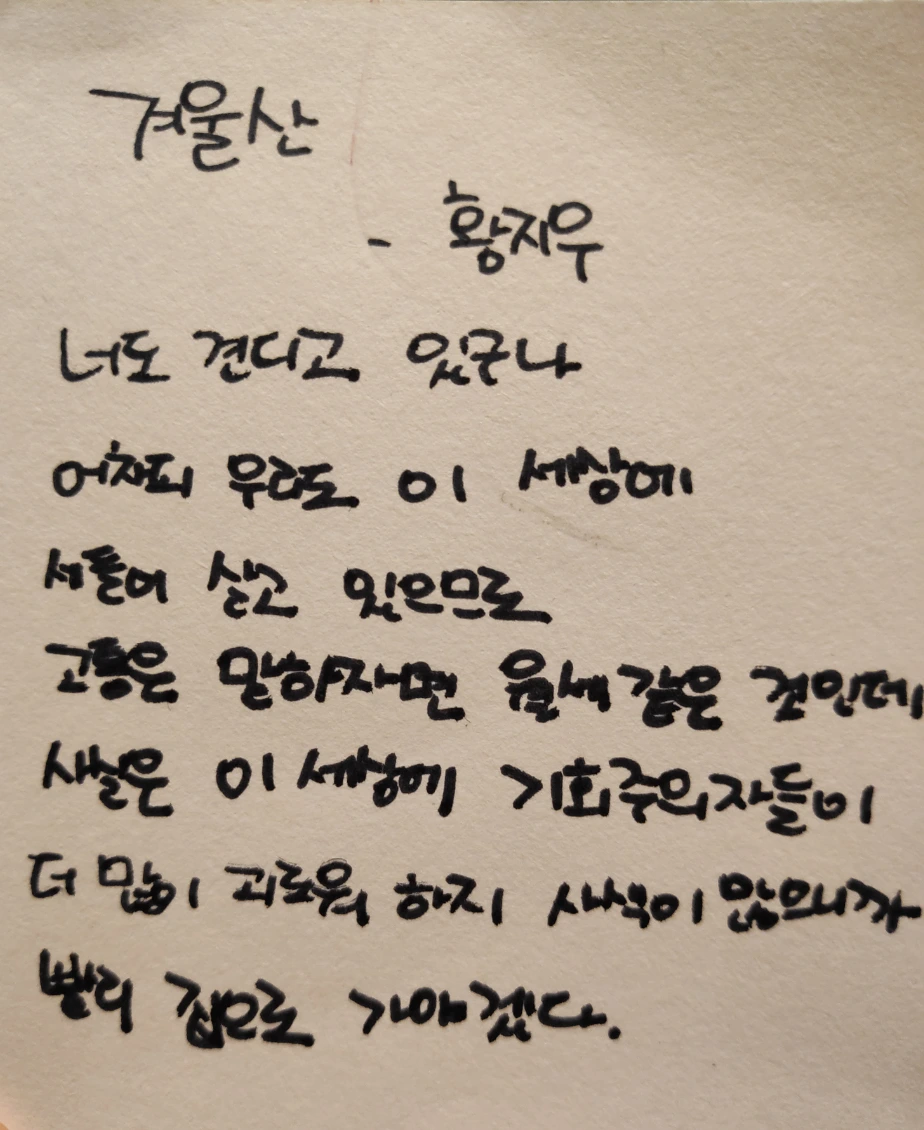 겨울산
- 황지우
너도 견디고 있구나
어차피 우리도 이 세상에
세들어 살고 있으므로
고통은 말하자면 월세 같은 것인데
사실은 이 세상에 기회주의자들이
더 많이 괴로워 하지 사색이 많으니까
빨리 집으로 가야겠다.